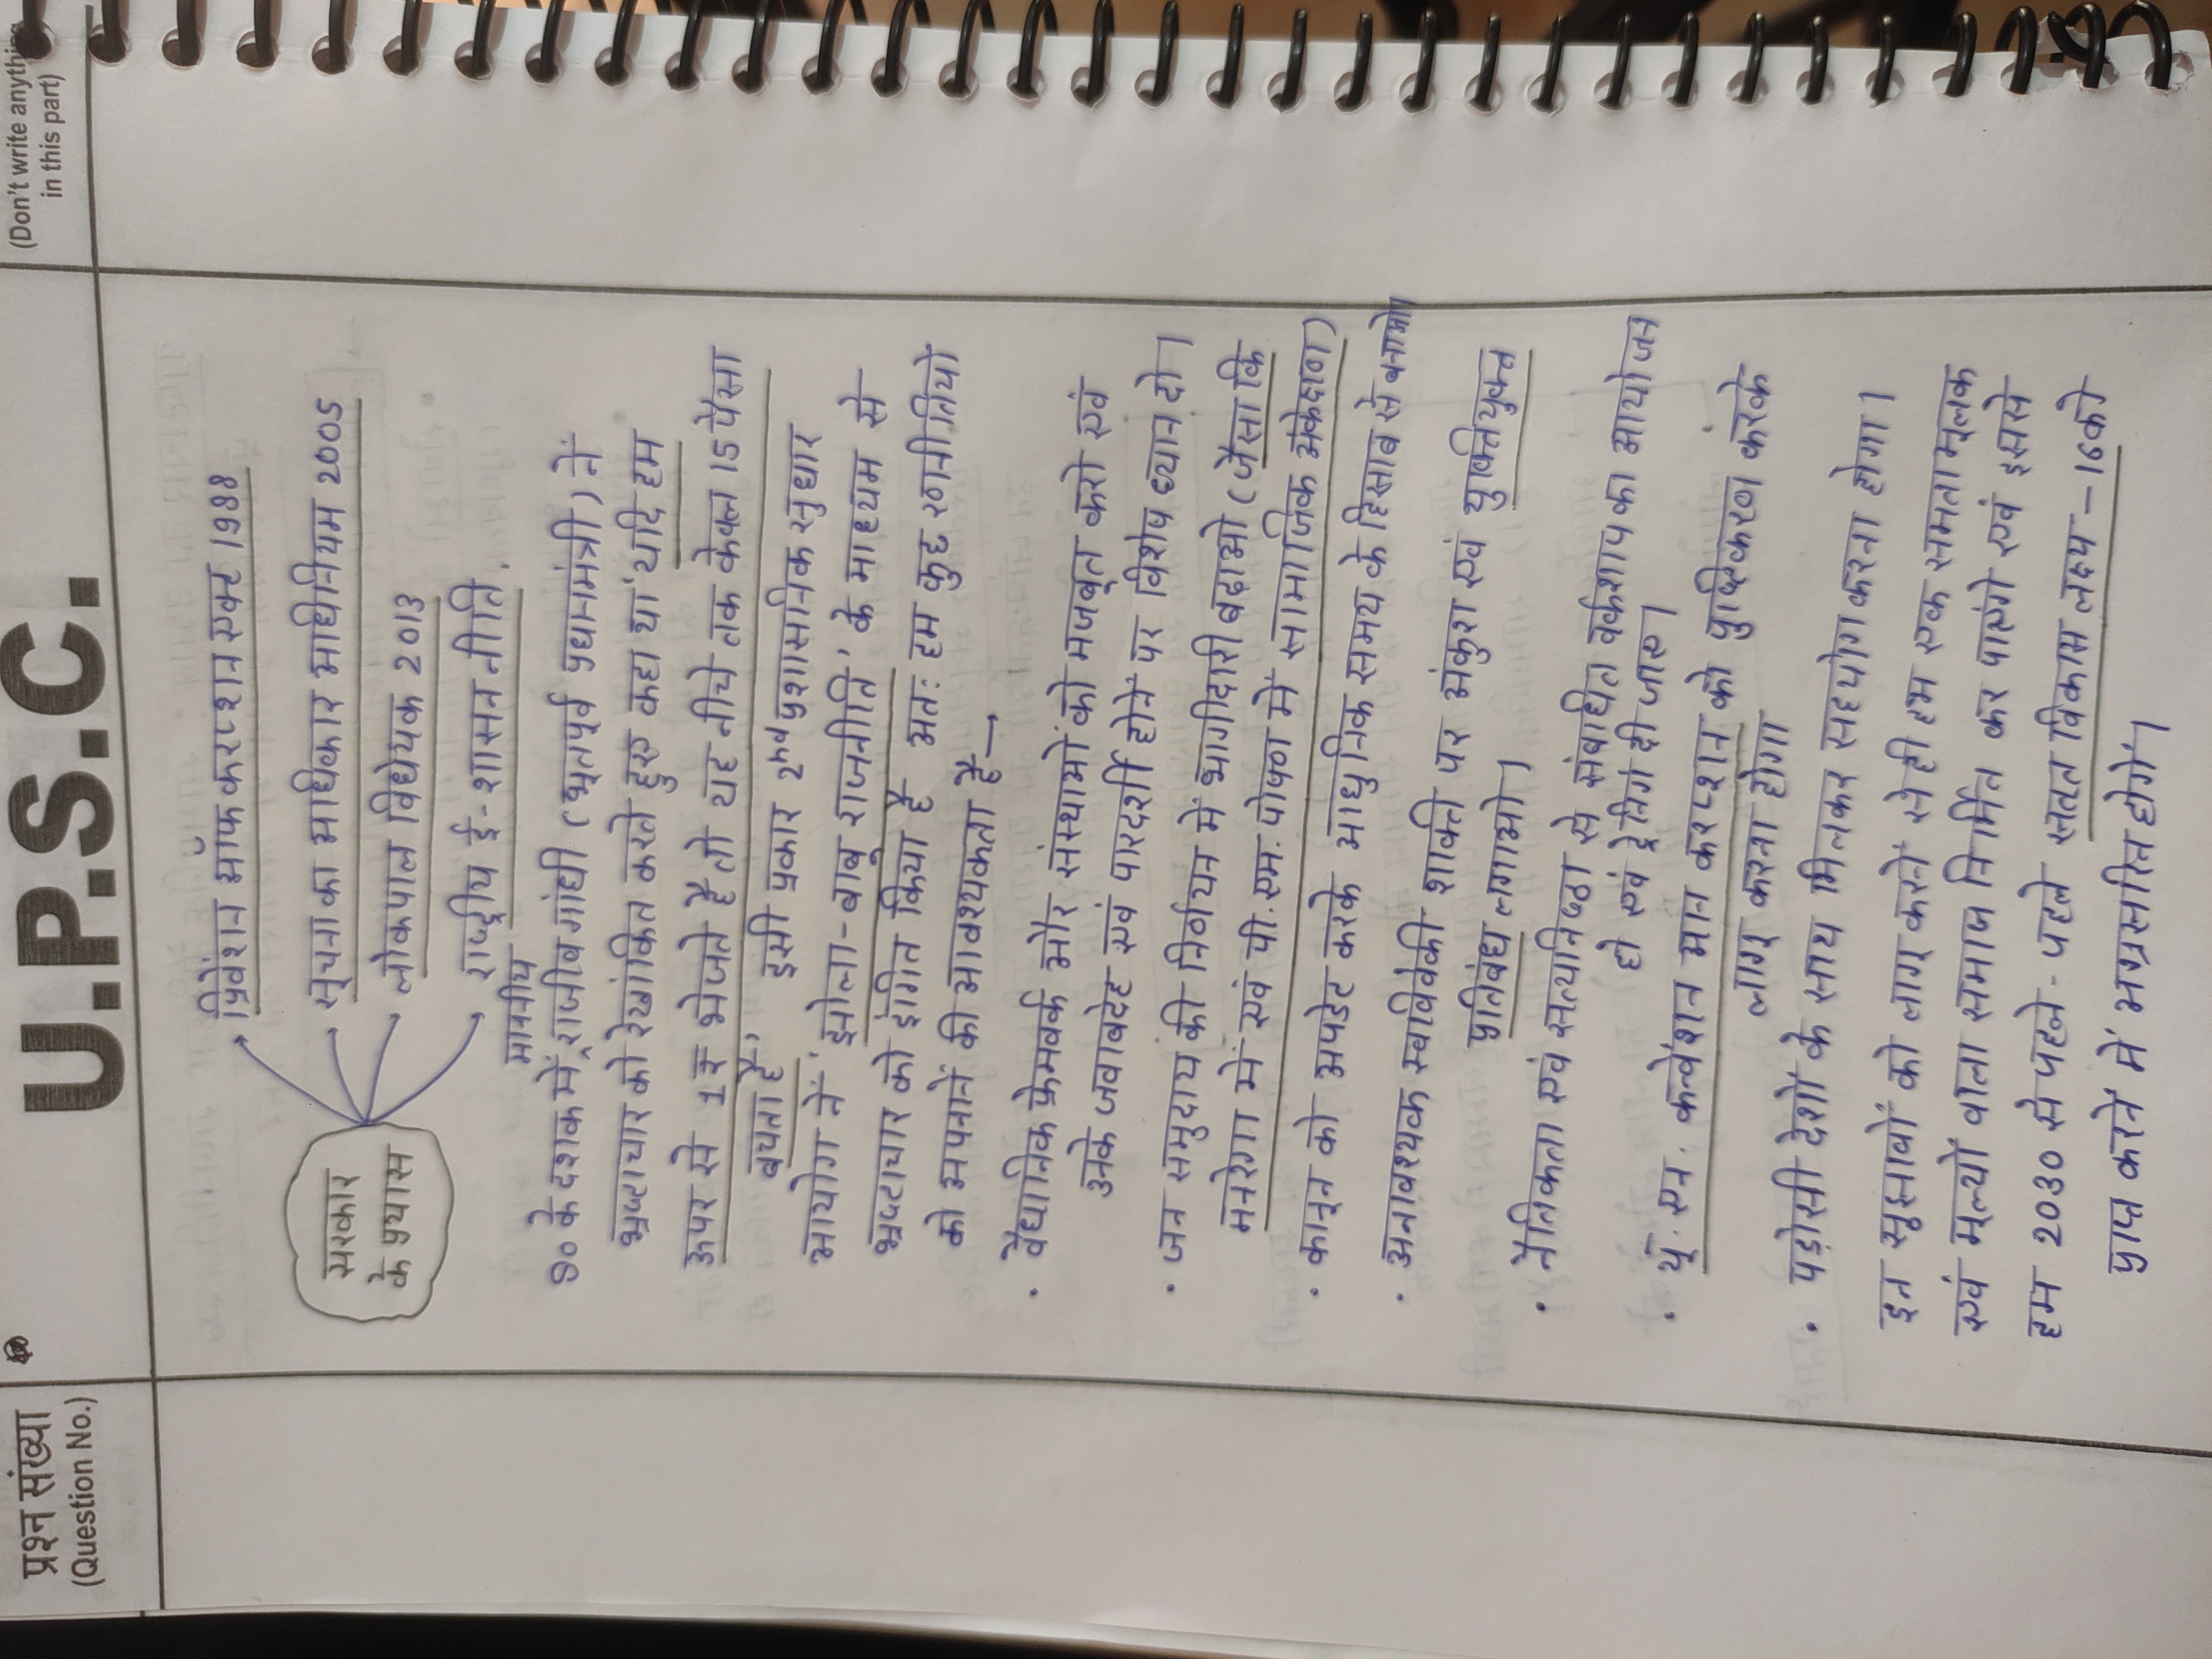 प्रश्न संख्या
(Question No.)
U.P.S.C.
(Don't write anything
in this part)
सरकार
के प्रयास
प्रिवेंशन ऑफ करप्शन एक्ट 1988
सूचना का अधिकार अधिनियम 2005
लोकपाल विधेयक 2013
राष्ट्रीय ई-शासन नीति.
माननीय
90 के दशक में राजीव गांधी (भूतपूर्व प्रधानमंत्री) ने
भ्रष्टाचार को रेखांकित करते हुए कहा था 'यदि हम
ऊपर से 1₹ भेजते है तो यह नीचे तक केवल 15 पैसा
बचता है'
इसी प्रकार 2nd प्रशासनिक सुधार
आयोग ने 'झोला-बाबू राजनीति' के माध्यम से
भ्रष्टाचार को इंगित किया है अतः हम कुछ रणनीतियों
को अपनाने की आवश्यकता है→
• वैधानिक फ्रेमवर्क और संस्थाओं को मजबूत करो एवं
उनके जवाबदेह एवं पारदर्शी होने पर विशेष ध्यान दो।
• जन समुदाय की निर्णयन में भागीदारी बढ़ाओ (जैसा कि
मनरेगा में एवं पी.एम. पोषण में सामाजिक अंकेक्षण)
• कानून को अपडेट करके आधुनिक समय के हिसाब से बनाओ।
• अनावश्यक स्वविवेकी शक्ति पर अंकुश एवं युक्तियुक्त
प्रतिबंध लगाओ।
• नैतिकता एवं सत्यनिष्ठा से संबंधित वर्कशाप का आयोजन
हो एवं ट्रेनिंग दी जाए।
• यू. एन. कन्वेंशन आन करप्शन को पुष्टिकरण करके
लागू करना होगा
• पड़ोसी देशों के साथ मिलकर सहयोग करना होगा।
इन सुझावों को लागू करने से ही हम एक समतामूलक
एवं मूल्यों वाला समाज निर्मित कर पाएंगे एवं इससे
हम 2030 से पहले-पहले सतत विकास लक्ष्य-16 को
प्राप्त करने में अग्रसरित होगें।